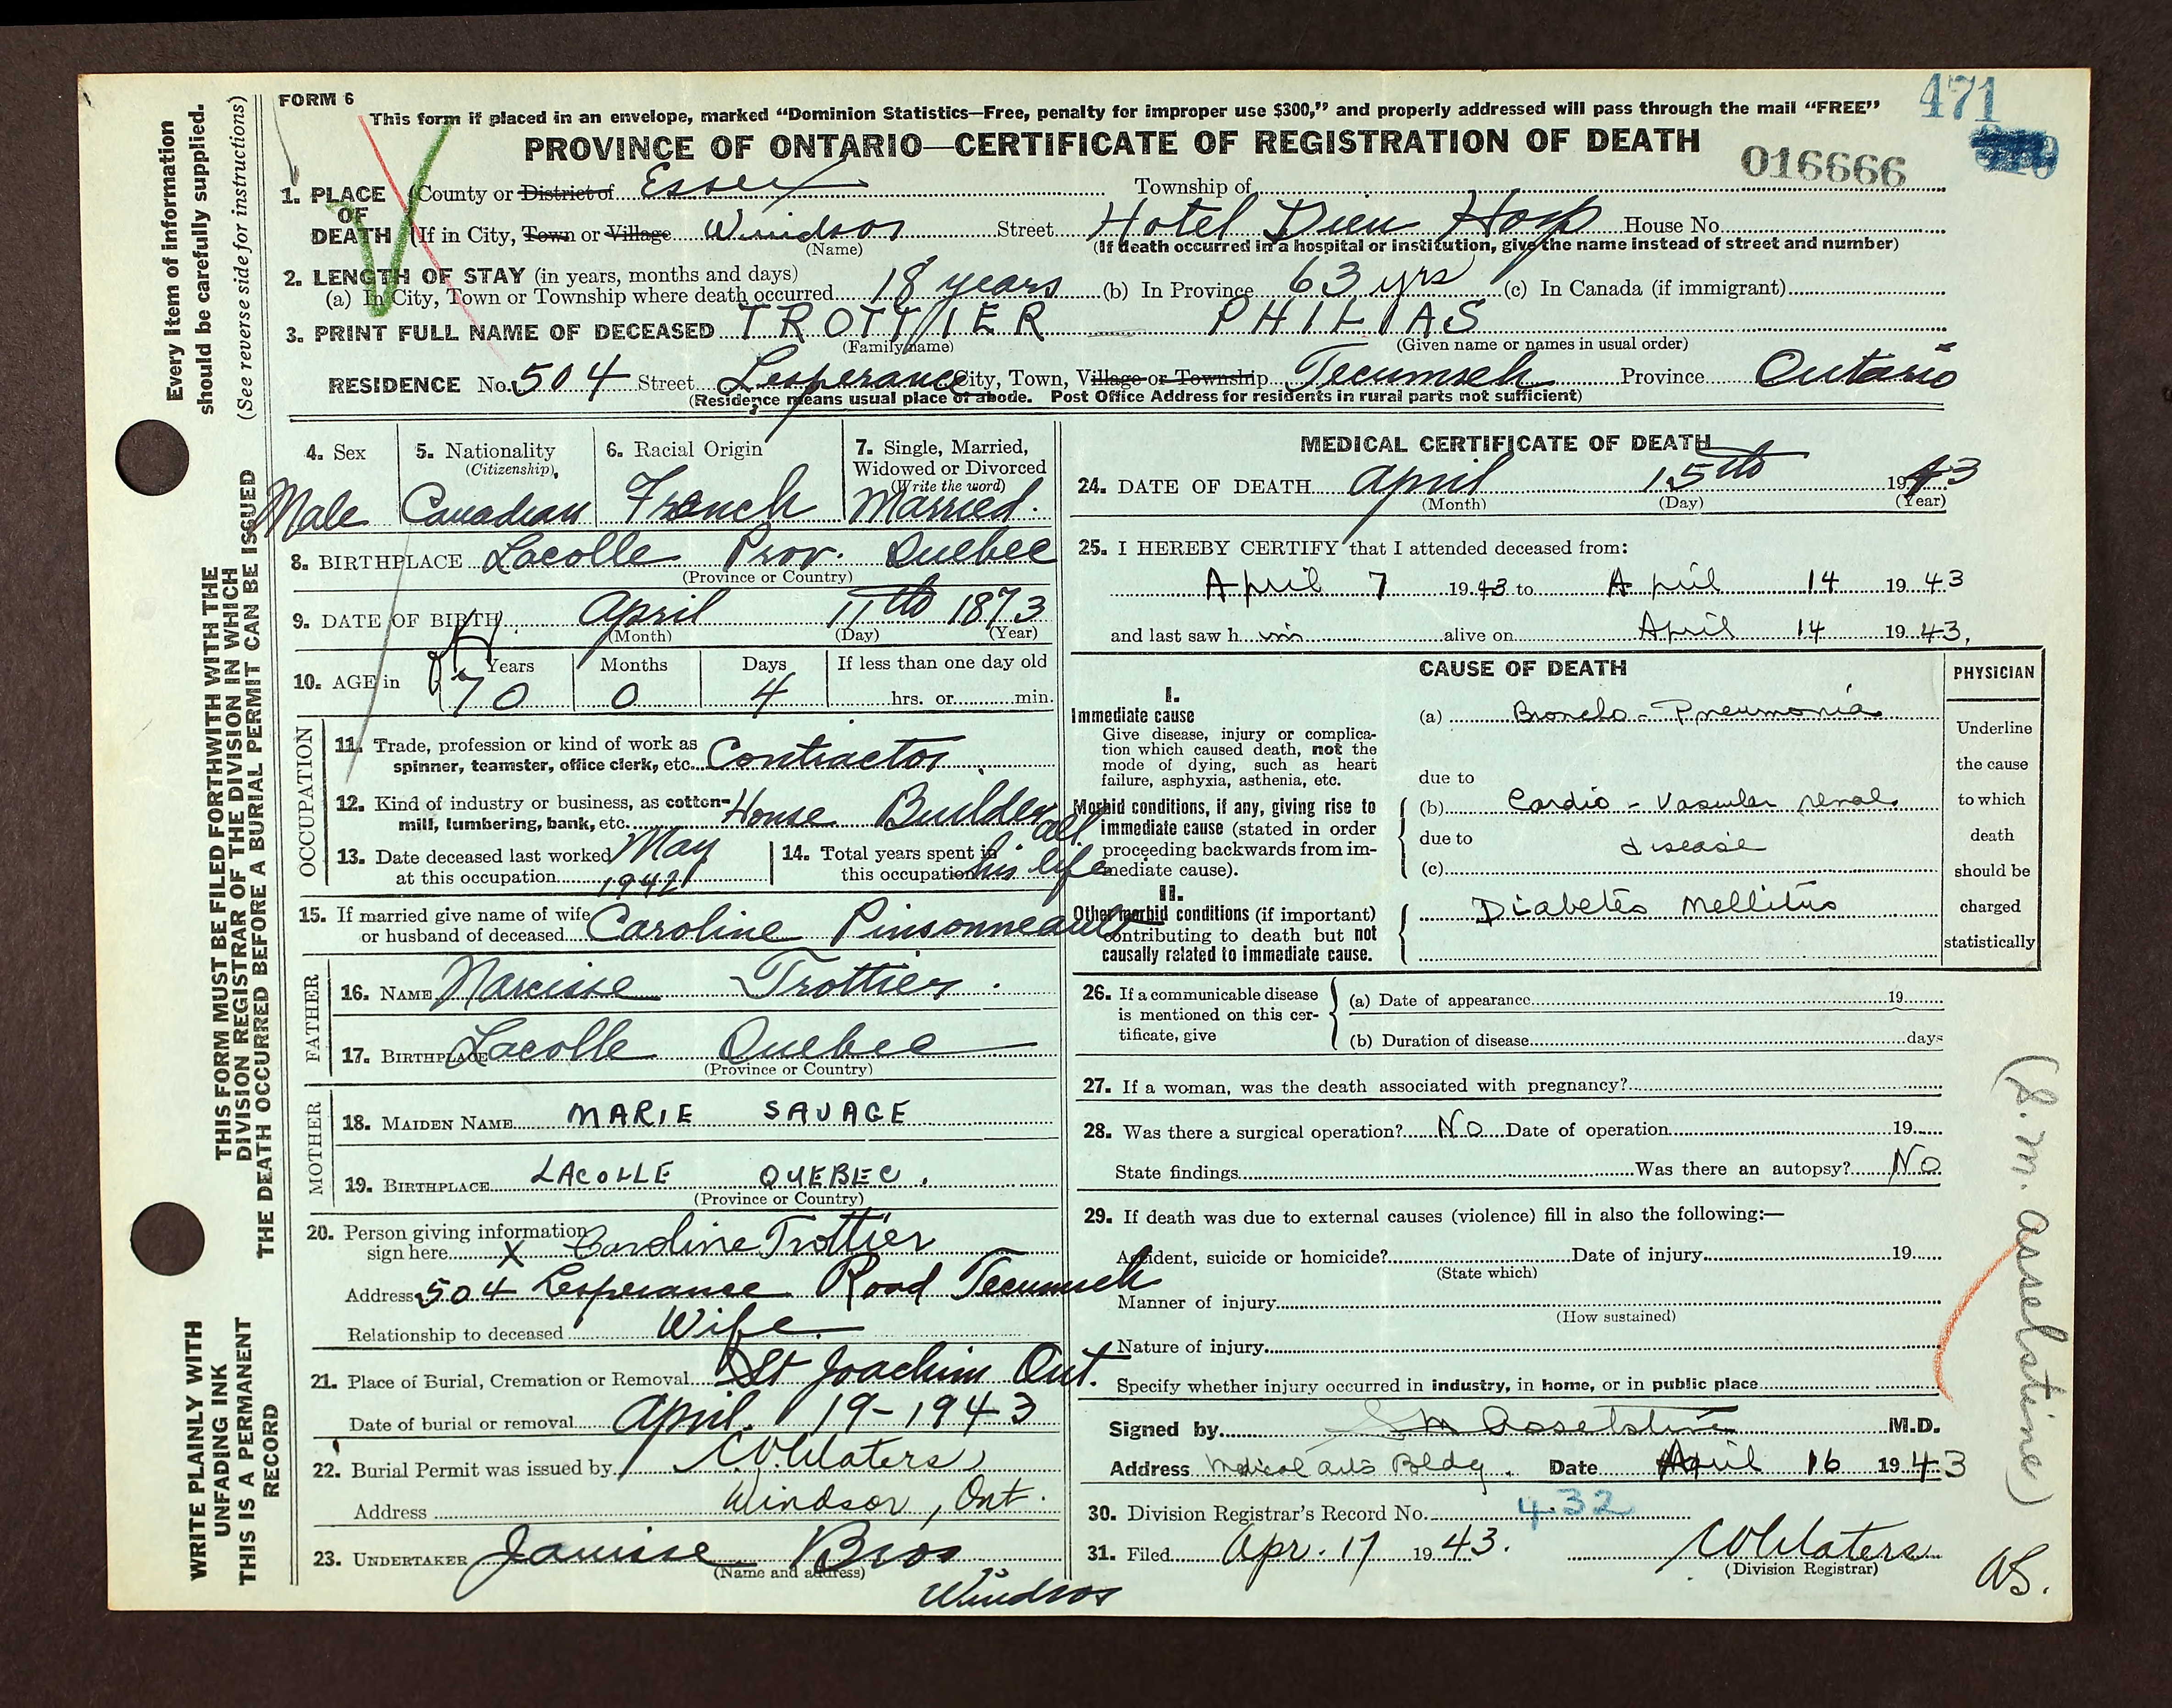 FORM 6
This form if placed in an envelope, marked "Dominion Statistics—Free, penalty for improper use $300," and properly addressed will pass through the mail "FREE"
471
PROVINCE OF ONTARIO—CERTIFICATE OF REGISTRATION OF DEATH
016666
1. PLACE OF DEATH
County or District of Essex Township of
If in City, Town or Village Windsor Street Hotel Dieu Hosp House No.
(Name) (If death occurred in a hospital or institution, give the name instead of street and number)
2. LENGTH OF STAY (in years, months and days)
(a) In City, Town or Township where death occurred 18 years (b) In Province 63 yrs (c) In Canada (if immigrant)
3. PRINT FULL NAME OF DECEASED TROTTIER PHILIAS
(Family name) (Given name or names in usual order)
RESIDENCE No. 504 Street Lesperance City, Town, Village or Township Tecumseh Province Ontario
(Residence means usual place of abode. Post Office Address for residents in rural parts not sufficient)
4. Sex
Male
5. Nationality
(Citizenship)
Canadian
6. Racial Origin
French
7. Single, Married,
Widowed or Divorced
(Write the word)
Married.
8. BIRTHPLACE Lacolle Prov. Quebec
(Province or Country)
9. DATE OF BIRTH April 11th 1873
(Month) (Day) (Year)
10. AGE in
Years Months Days If less than one day old
70 0 4 hrs. or min.
OCCUPATION
11. Trade, profession or kind of work as
spinner, teamster, office clerk, etc. Contractor
12. Kind of industry or business, as cotton-
mill, lumbering, bank, etc. House Builder
13. Date deceased last worked May
at this occupation 1942
14. Total years spent in all
this occupation his life
15. If married give name of wife
or husband of deceased Caroline Pinsonneault
FATHER
16. NAME Narcisse Trottier.
17. BIRTHPLACE Lacolle Quebec
(Province or Country)
MOTHER
18. MAIDEN NAME MARIE SAVAGE
19. BIRTHPLACE LACOLLE QUEBEC.
(Province or Country)
20. Person giving information
sign here X Caroline Trottier
Address 504 Lesperance Road Tecumseh
Relationship to deceased Wife.
21. Place of Burial, Cremation or Removal St Joachim Ont.
Date of burial or removal April 19-1943
22. Burial Permit was issued by C.W. Waters
Address Windsor, Ont.
23. UNDERTAKER Janisse Bros
(Name and address)
Windsor
MEDICAL CERTIFICATE OF DEATH
24. DATE OF DEATH April 15th 1943
(Month) (Day) (Year)
25. I HEREBY CERTIFY that I attended deceased from:
April 7 1943 to April 14 1943
and last saw him alive on April 14 1943,
CAUSE OF DEATH
I.
Immediate cause
Give disease, injury or complica-
tion which caused death, not the
mode of dying, such as heart
failure, asphyxia, asthenia, etc.
(a) Broncho-Pneumonia
due to
Morbid conditions, if any, giving rise to
immediate cause (stated in order
proceeding backwards from im-
mediate cause).
(b) Cardio-Vascular renal
due to disease
(c)
II.
Other morbid conditions (if important)
contributing to death but not
causally related to immediate cause.
Diabetes Mellitus
PHYSICIAN
Underline
the cause
to which
death
should be
charged
statistically
26. If a communicable disease
is mentioned on this cer-
tificate, give
(a) Date of appearance 19
(b) Duration of disease days
27. If a woman, was the death associated with pregnancy?
28. Was there a surgical operation? No Date of operation 19
State findings Was there an autopsy? No
29. If death was due to external causes (violence) fill in also the following:—
Accident, suicide or homicide? Date of injury 19
(State which)
Manner of injury
(How sustained)
Nature of injury
Specify whether injury occurred in industry, in home, or in public place
Signed by S M Asselstine M.D.
Address Medical Arts Bldg. Date April 16 1943
30. Division Registrar's Record No. 432
31. Filed Apr. 17 1943. C W Waters
(Division Registrar)
(S. M. Asselstine)
WS.
Every item of information
should be carefully supplied.
(See reverse side for instructions)
THIS FORM MUST BE FILED FORTHWITH WITH THE
DIVISION REGISTRAR OF THE DIVISION IN WHICH
THE DEATH OCCURRED BEFORE A BURIAL PERMIT CAN BE ISSUED
WRITE PLAINLY WITH
UNFADING INK
THIS IS A PERMANENT
RECORD